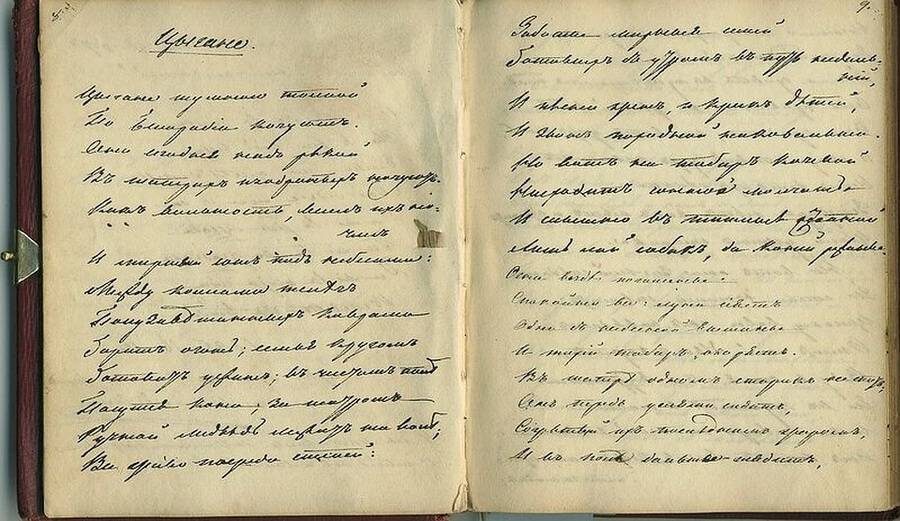 Цыгане.
Цыгане шумною толпой
По Бессарабіи кочуютъ.
Они сегодня надъ рѣкой
Въ шатрахъ изодранныхъ ночуютъ.
Какъ вольность, веселъ ихъ но-
члегъ
И мирный сонъ подъ небесами:
Между колесами телѣгъ
Полузавѣшанныхъ коврами
Горитъ огонь; семья кругомъ
Готовитъ ужинъ; въ чистомъ полѣ
Пасутся кони; за шатромъ
Ручной медвѣдь лежитъ на волѣ;
Все живо посреди степей:
9.
Заботы мирныя семей
Готовыхъ съ утромъ въ путь недаль-
ній,
И пѣсни женъ, и крикъ дѣтей,
И звонъ походной наковальни.
Но вотъ на таборъ кочевой
Нисходитъ сонное молчанье
И слышно въ тишинѣ степной
Лишь лай собакъ, да коней ржанье
Огни вездѣ погашены.
Спокойно все: луна сіяетъ
Одна съ небесной вышины
И тихій таборъ озаряетъ.
Въ шатрѣ одномъ старикъ не спитъ;
Онъ передъ углями сидитъ,
Согрѣтый ихъ послѣднимъ жаромъ,
И въ поле дальнее глядитъ,